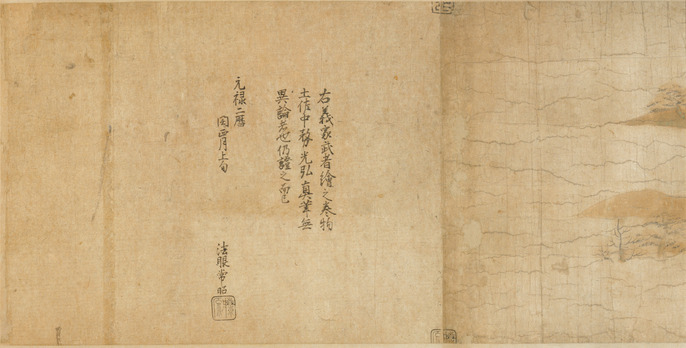 右義家武者繪之巻物
土佐中務光弘真筆無
異論者也仍證之而已
元禄二暦
閏正月上旬
法眼常昭